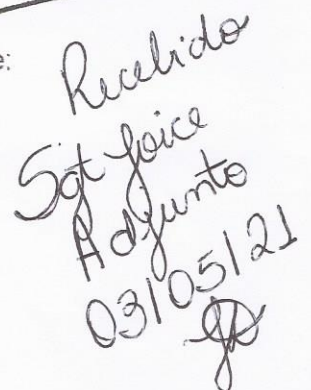 e:
Recebido
Sgt Joice
Adjunto
03/05/21